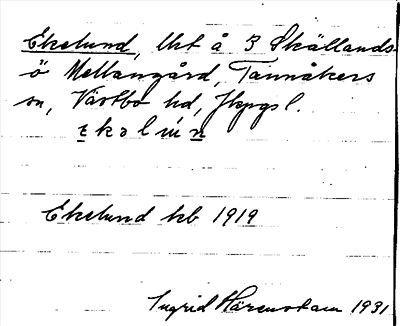 Ekelund, lht å 3 Skällands-
ö Mellangård, Tannåkers
sn, Västbo hd, Jkpgs l.
Ekelund kb 1919
Ingrid Härenstam 1931